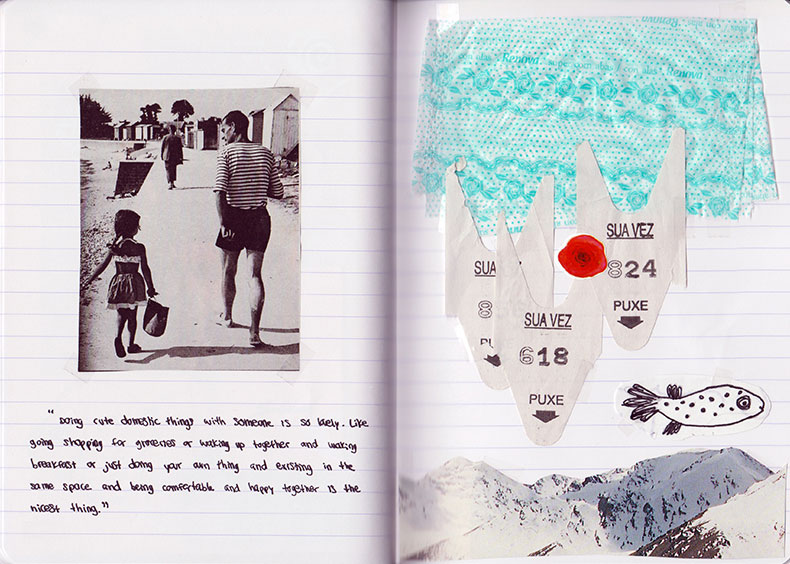 " Doing cute domestic things with someone is so lovely. Like
going shopping for groceries or waking up together and making
breakfast or just doing your own thing and existing in the
same space and being comfortable and happy together is the
nicest thing."
Renova
Renova
Renova
SUA VEZ
824
PUXE
SUA
8
PU
SUA VEZ
618
PUXE